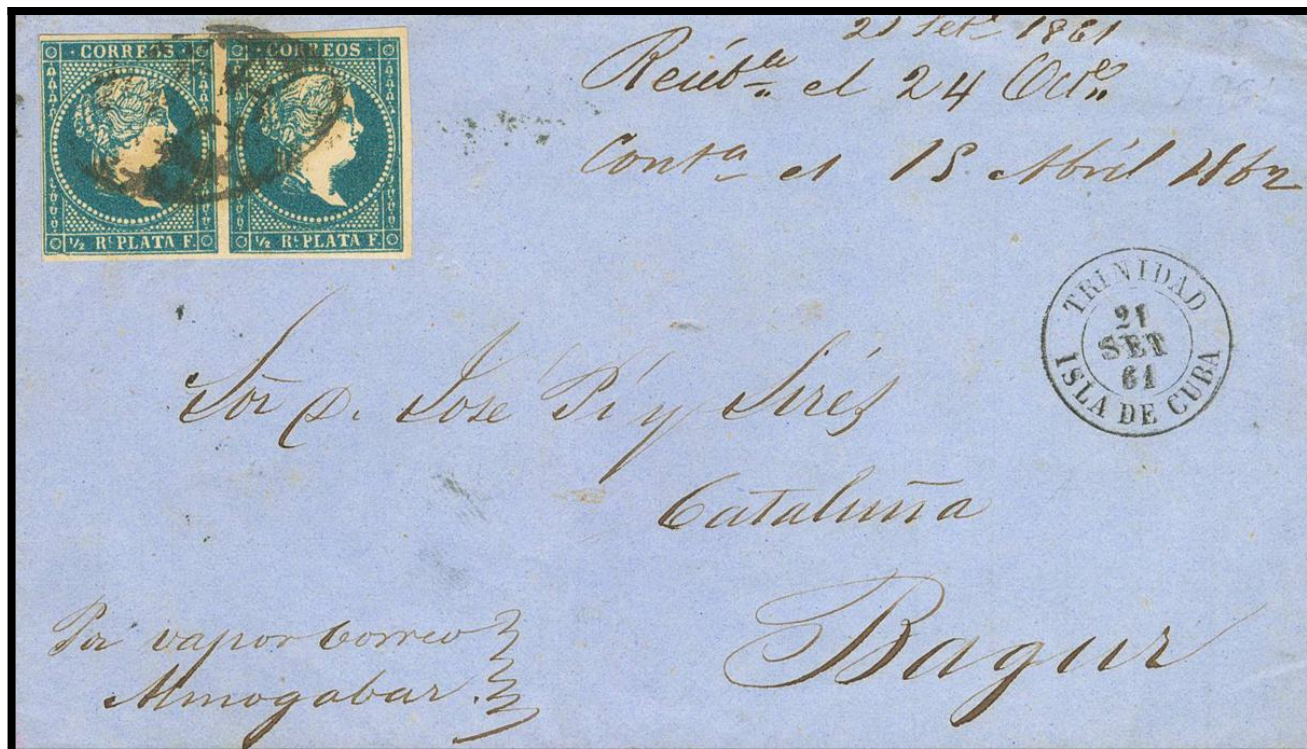 CORREOS CORREOS
½ Rˡ PLATA F. ½ Rˡ PLATA F.
21 Setᵉ 1861
Recibᵈᵃ el 24 Octᵉ
Contᵃ el 15 Abril 1862
TRINIDAD
21
SET
61
ISLA DE CUBA
Sor D. José Pí y Sirés
Cataluña
Bagur
Por vapor Correo
Almogabar.